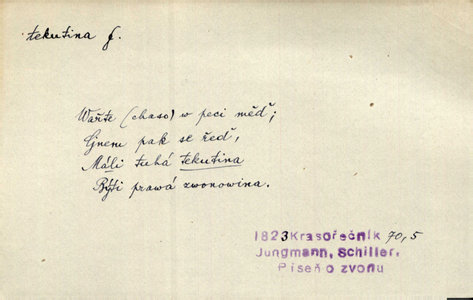 tekutina f.
Wařte (chaso) w peci měď;
Cjnem pak se řeď,
Máli tuhá tekutina
Býti prawá zwonowina.
1823 Krasořečník 70,5
Jungmann, Schiller,
Píseň o zvonu